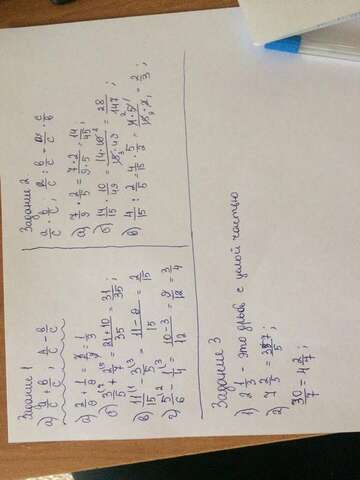 Задание 1
a/c + b/c ; a/c - b/c
а) 2/9 + 1/9 = 3/9 = 1/3
б) 3/5 + 2/7 = 21+10/35 = 31/35 ;
в) 11/15 - 3/5 = 11-9/15 = 2/15
г) 5/6 - 1/4 = 10-3/12 = 9/12 = 3/4
Задание 2
a/c · b/c ; a/c : b/c = a/c · c/b
а) 7/9 · 2/5 = 7·2/9·5 = 14/45 ;
б) 14/15 · 10/49 = 14·10/15·49 = 28/147 ;
в) 4/15 : 2/5 = 4/15 · 5/2 = 4·5/15·2 = 2/3 ;
Задание 3
1) 2 1/3 - это дробь с целой частью
2) 7 2/5 = 37/5 ;
30/7 = 4 2/7 ;